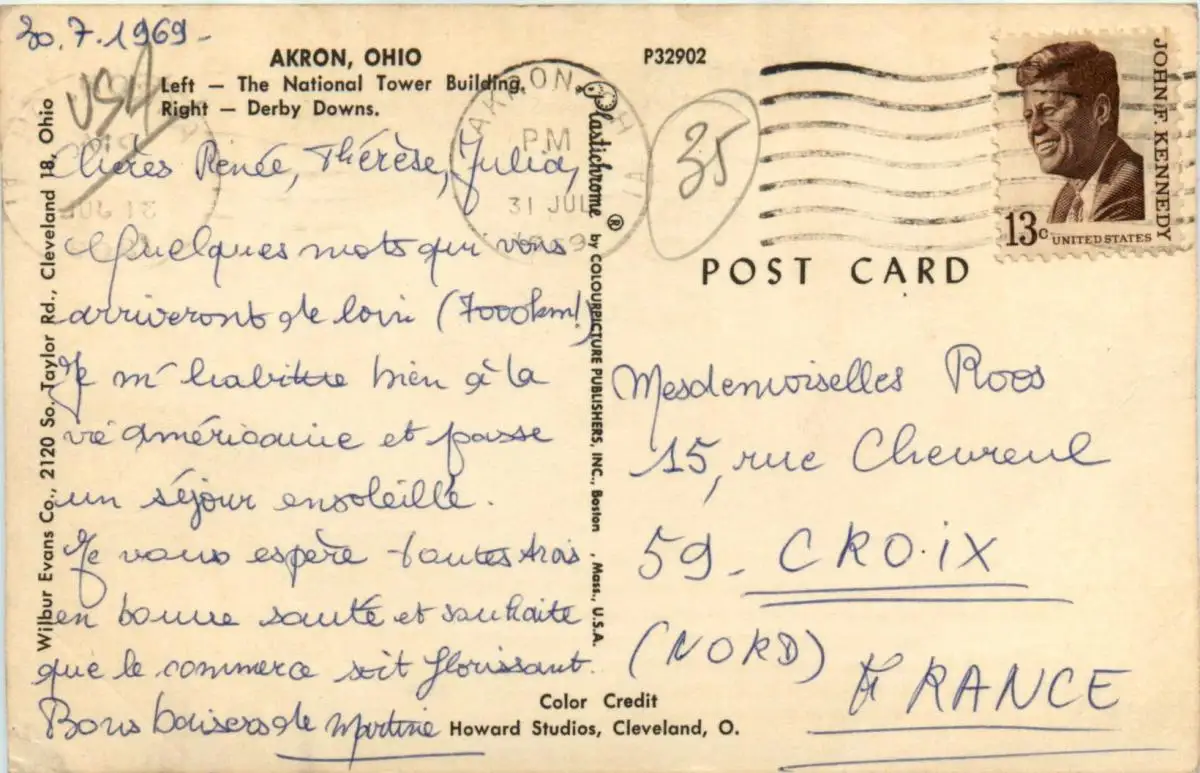 30.7.1969-
USA
AKRON, OHIO
Left — The National Tower Building.
Right — Derby Downs.
P32902
Chères Renée, Thérèse, Julia,
Quelques mots qui vous
arriveront de loin (7000km!)
Je m'habitue bien à la
vie américaine et passe
un séjour ensoleillé.
Je vous espère toutes trois
en bonne santé et souhaite
que le commerce soit florissant.
Bons baisers de Martine
Wilbur Evans Co., 2120 So. Taylor Rd., Cleveland 18, Ohio
Plastichrome ® by COLOURPICTURE PUBLISHERS, INC., Boston, Mass., U.S.A.
Color Credit
Howard Studios, Cleveland, O.
AKRON, OH
PM
31 JUL
35
JOHN F. KENNEDY
13c UNITED STATES
POST CARD
Mesdemoiselles Roos
15, rue Chevreul
59 - CROIX
(NORD)
FRANCE